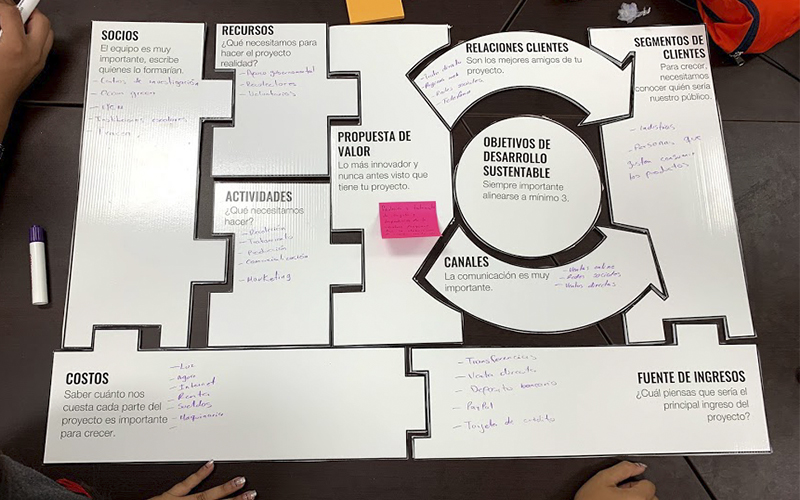 SOCIOS
El equipo es muy
importante, escribe
quienes lo formarían.
- Centros de investigación
- Ocean green
- Instituciones
RECURSOS
¿Qué necesitamos para
hacer el proyecto
realidad?
- Apoyo gubernamental
- Recolectores
- Voluntarios
ACTIVIDADES
¿Qué necesitamos
hacer?
- Recolección
- Tratamiento
- Producción
- Comercialización
- Marketing
PROPUESTA DE
VALOR
Lo más innovador y
nunca antes visto que
tiene tu proyecto.
RELACIONES CLIENTES
Son los mejores amigos de tu
proyecto.
- Trato directo
- Página web
- Redes sociales
- Teléfono
OBJETIVOS DE
DESARROLLO
SUSTENTABLE
Siempre importante
alinearse a mínimo 3.
CANALES
La comunicación es muy
importante.
- Ventas online
- Redes sociales
- Ventas directas
SEGMENTOS DE
CLIENTES
Para crecer,
necesitamos
conocer quién sería
nuestro público.
- Industrias
- Personas que
gusten consumir
los productos
COSTOS
Saber cuánto nos
cuesta cada parte del
proyecto es importante
para crecer.
- Luz
- Agua
- Internet
- Renta
- Sueldos
- Maquinaria
-
- Transferencias
- Venta directa
- Deposito bancario
- PayPal
- Tarjeta de crédito
FUENTE DE INGRESOS
¿Cuál piensas que sería el
principal ingreso del
proyecto?